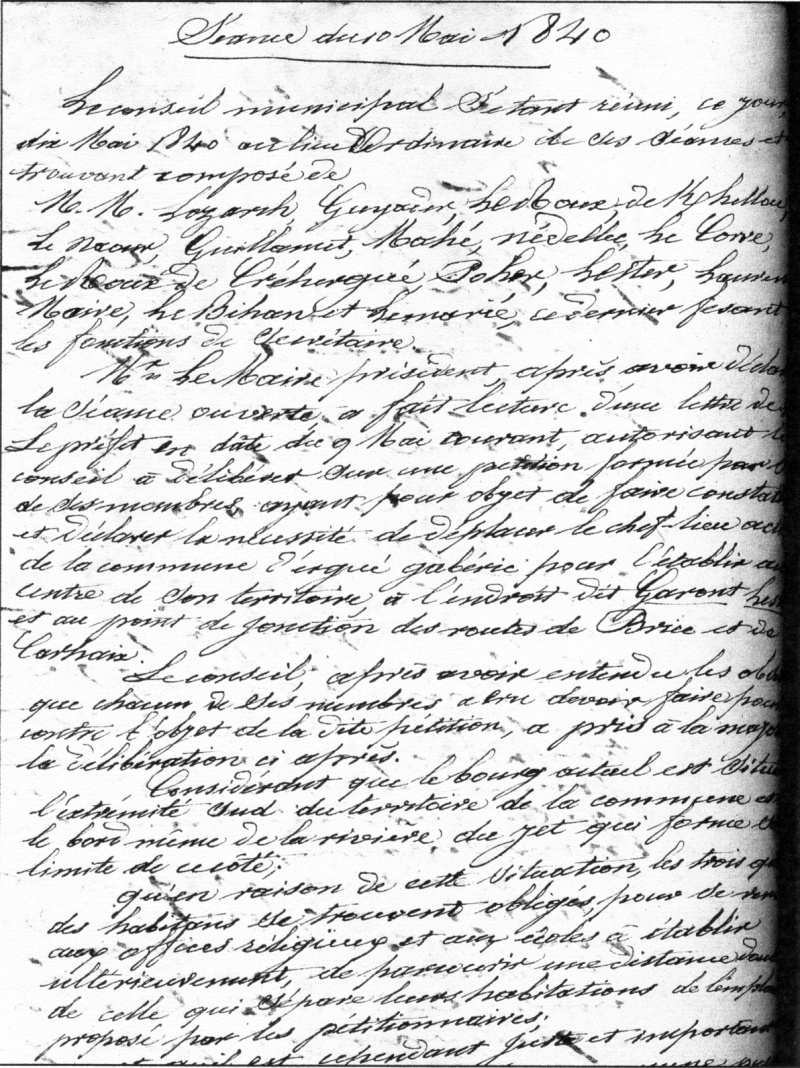 Séance du 10 Mai 1840
Le conseil municipal S'étant réuni, ce jour,
dix Mai 1840 au lieu Ordinaire de ses séances et
trouvant composé de
M. M. Lozarch, Guyader, Le Roux, de K/hellou,
Le Naour, Guillamet, Mahé, Nédellec, Le Corre,
Le Roux de Tréhergué, Poher, Lester, Laurent
Maire, Le Bihan et Lemarié, ce dernier fesant
les fonctions de Secrétaire.
Mr Le Maire président, après avoir décla
la Séance ouverte, a fait lecture d'une lettre de
Le préfet en date du 9 Mai courant, autorisant le
conseil à Délibérer sur une pétition formée par
de ses membres ayant pour objet de faire constat
et déclarer la nécessité de déplacer le chef-lieu act
de la commune d'ergué gabéric pour l'établir au
centre de son territoire, à l'endroit dit Garont
et au point de jonction des routes de Briec et de
Carhaix.
Le conseil, après avoir entendu les obs
que chacun de ses membres a cru devoir faire pour
contre l'objet de la dite pétition, a pris à la major
la délibération ci après.
Considérant que le bourg actuel est situé
l'extrémité sud du territoire de la commune et
le bord même de la rivière du jet qui forme
limite de ce côté;
qu'en raison de cette situation, les trois qu
des habitans se trouvent obligés, pour se ren
aux offices réligieux et aux écoles à établir
ultérieurement, de parcourir une distance dou
de celle qui sépare leurs habitations de l'empla
proposé par les pétitionnaires;
qu'il est cependant juste et important